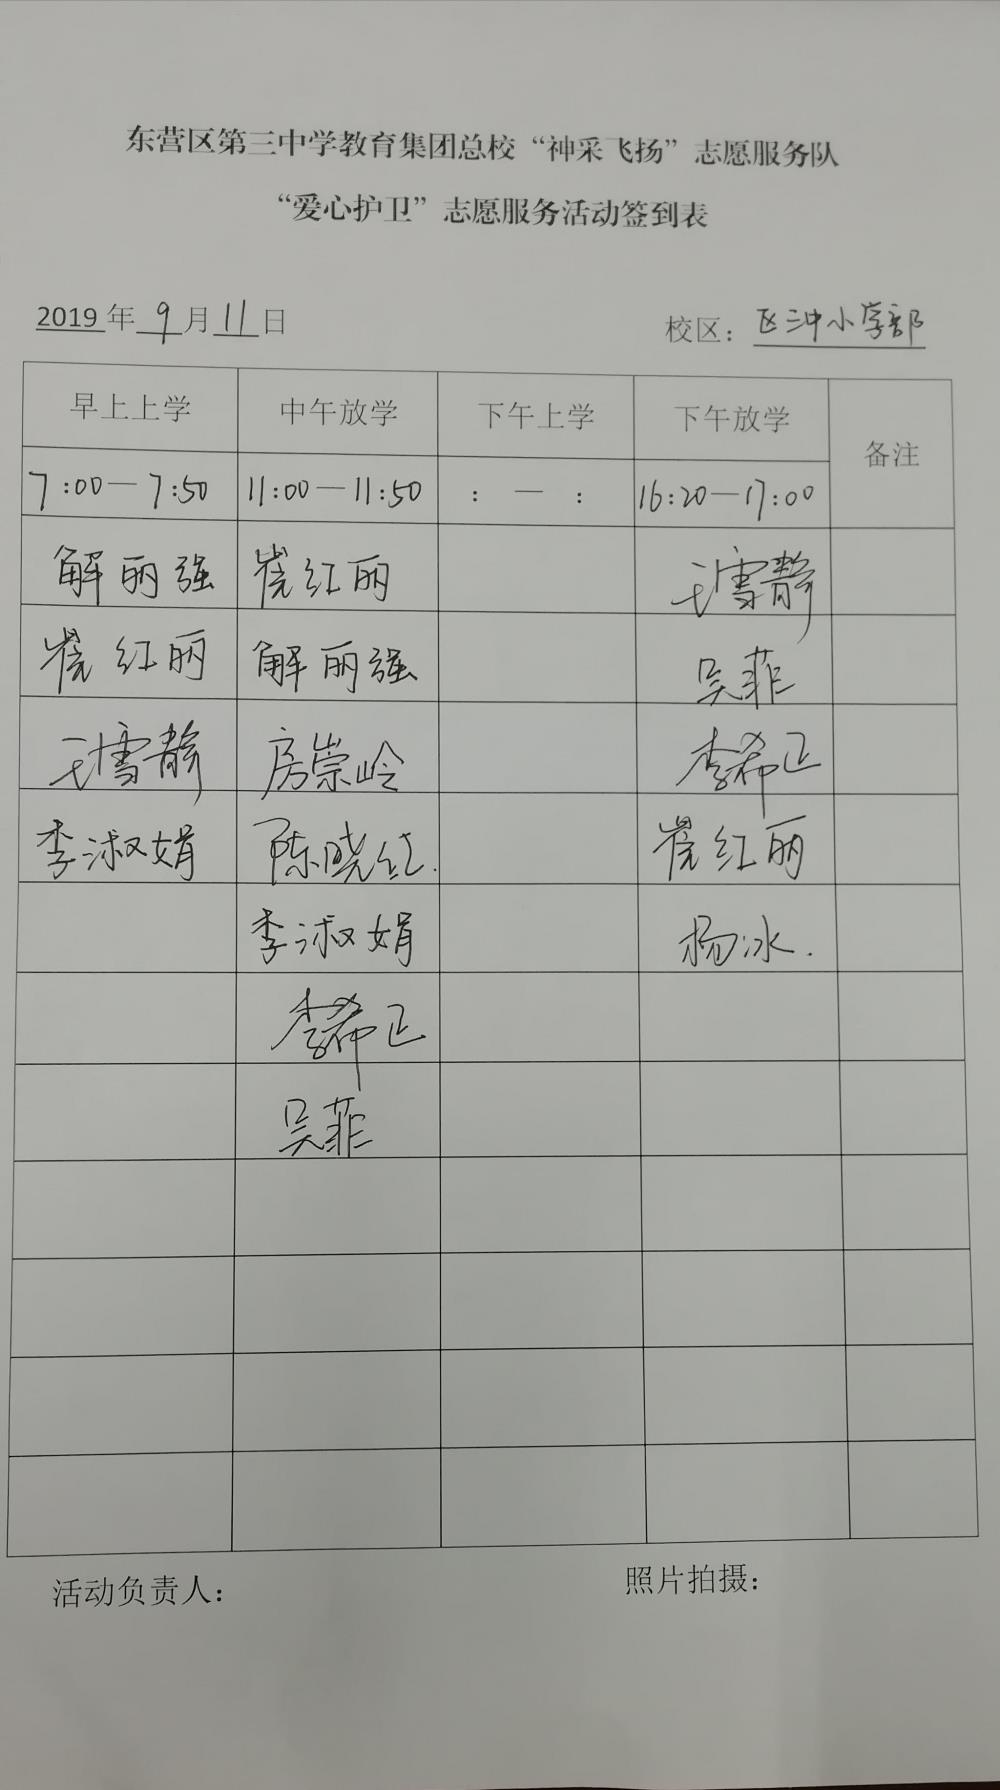 东营区第三中学教育集团总校“神采飞扬”志愿服务队
“爱心护卫”志愿服务活动签到表
2019年9月11日 校区：区三中小学部
早上上学 中午放学 下午上学 下午放学 备注
7:00—7:50 11:00—11:50 : — : 16:20—17:00
解丽强 崔红丽 王雪静
崔红丽 解丽强 吴菲
王雪静 房崇岭 李希正
李淑娟 陈晓红. 崔红丽
李淑娟 杨冰.
李希正
吴菲
活动负责人： 照片拍摄：